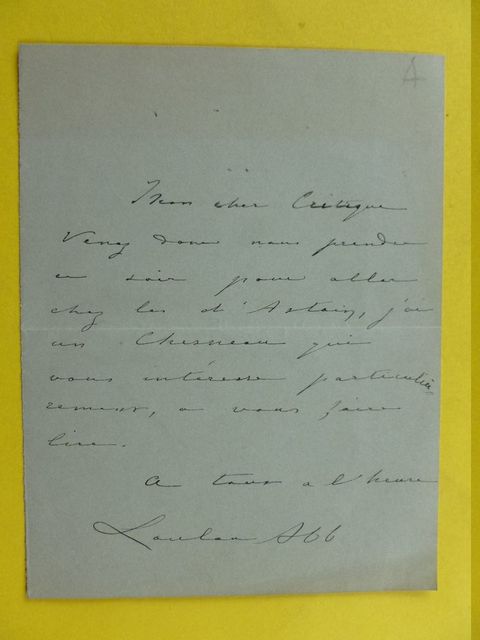 A
Mon cher Critique
Venez donc nous prendre
ce soir pour aller
chez les d'Astain, j'ai
un Chesneau qui
vous intéresse particuliè
rement, a vous faire
lire.
A tout a l'heure
Louise Abb